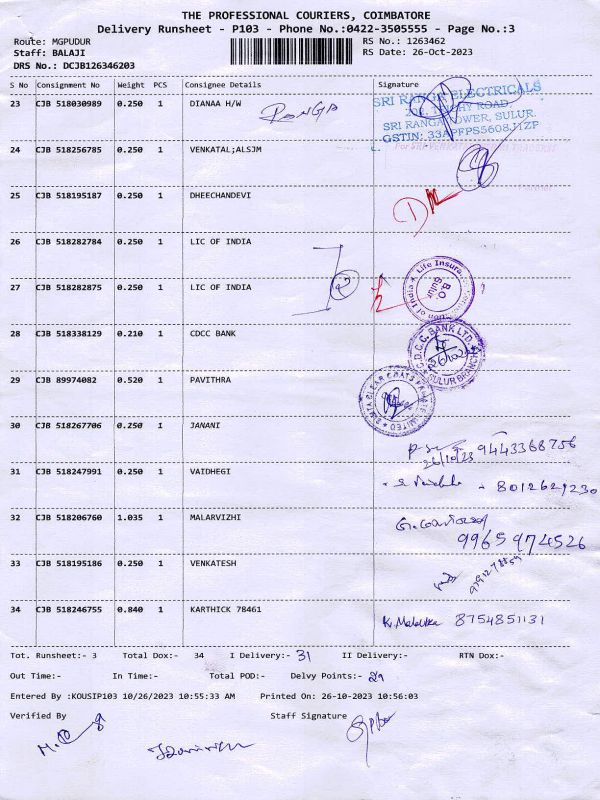 THE PROFESSIONAL COURIERS, COIMBATORE
Delivery Runsheet - P103 - Phone No.:0422-3505555 - Page No.:3
Route: MGPUDUR RS No.: 1263462
Staff: BALAJI RS Date: 26-Oct-2023
DRS No.: DCJB126346203
S No Consignment No Weight PCS Consignee Details Signature
23 CJB 518030989 0.250 1 DIANAA H/W RANGA
SRI RANGA ELECTRICALS
TRICHY ROAD
SRI RANGA TOWER, SULUR.
GSTIN: 33APFPS5608J1ZP
24 CJB 518256785 0.250 1 VENKATAL;ALSJM
25 CJB 518195187 0.250 1 DHEECHANDEVI
26 CJB 518282784 0.250 1 LIC OF INDIA
27 CJB 518282875 0.250 1 LIC OF INDIA
Life Insurance Corporation of India
B.O
Sulur
28 CJB 518338129 0.210 1 CDCC BANK
C.D.C.C. BANK LTD.
SULUR BRANCH
29 CJB 89974082 0.520 1 PAVITHRA
PRIVATE LIMITED
30 CJB 518267706 0.250 1 JANANI
26/10/23 9443368756
31 CJB 518247991 0.250 1 VAIDHEGI
- 8012629230
32 CJB 518206760 1.035 1 MALARVIZHI
9965974526
33 CJB 518195186 0.250 1 VENKATESH
34 CJB 518246755 0.840 1 KARTHICK 78461 K. Malavika 8754851131
Tot. Runsheet:- 3 Total Dox:- 34 I Delivery:- 31 II Delivery:- RTN Dox:-
Out Time:- In Time:- Total POD:- Delvy Points:- 29
Entered By :KOUSIP103 10/26/2023 10:55:33 AM Printed On: 26-10-2023 10:56:03
Verified By Staff Signature